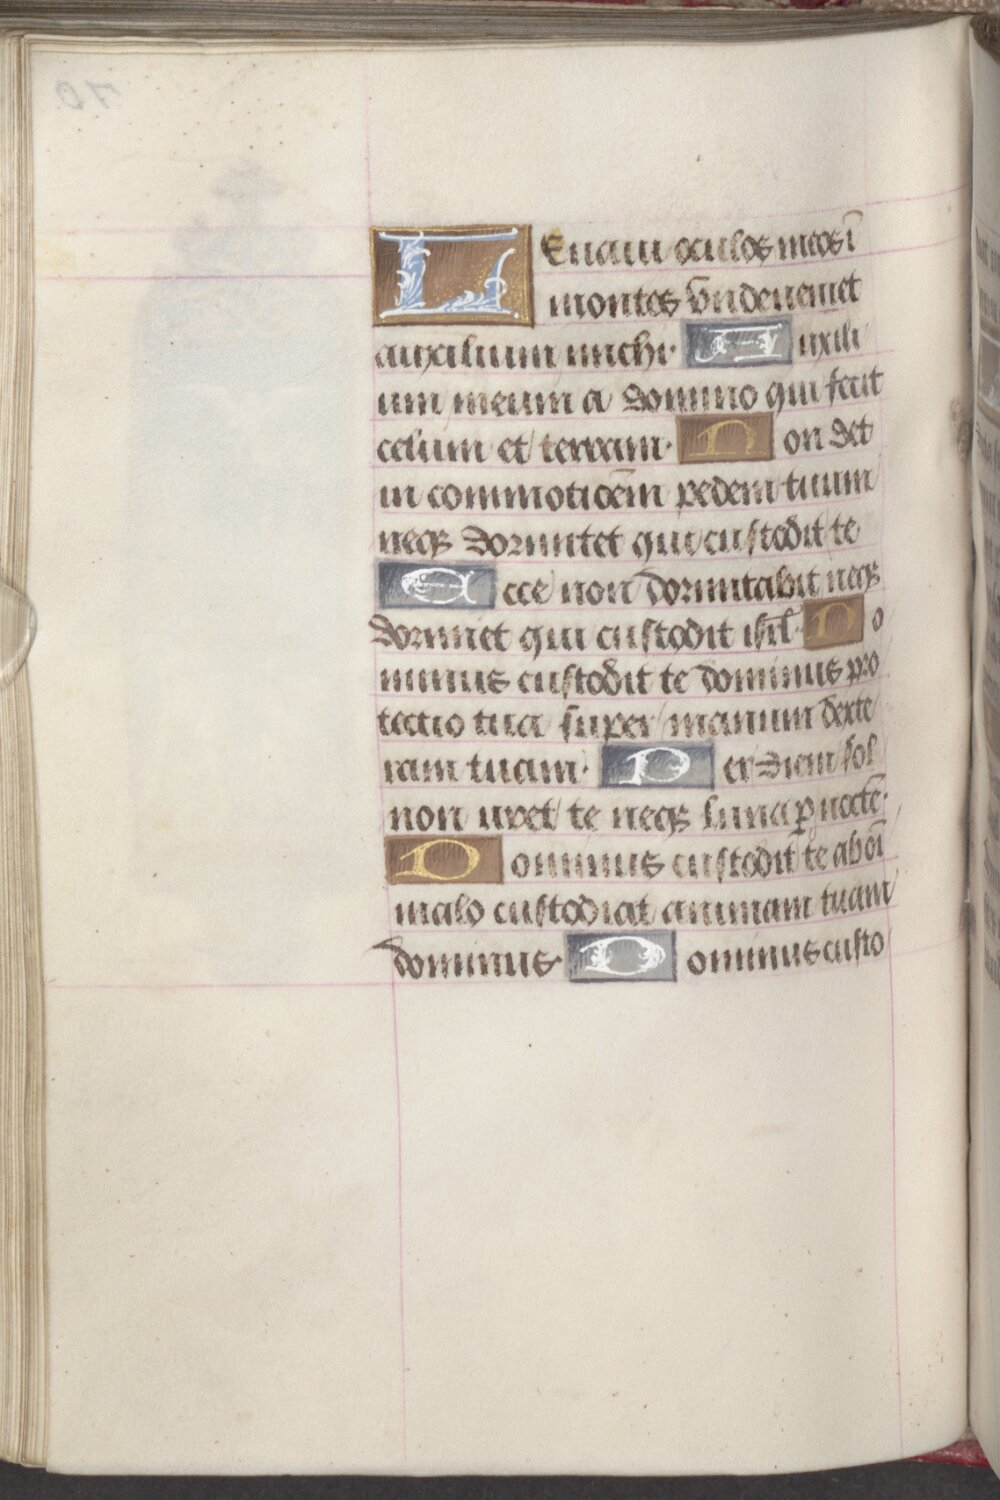 LEuaui oculos meos ī
montes vnde veniet
auxilium michi· Auxili
um meum a domino qui fecit
celum et terram· Non det
in commotiōem pedem tuum
neqꝫ dormitet qui custodit te
Ecce non dormitabit neqꝫ
dormiet qui custodit isrl̄· Do
minus custodit te dominus pro
tectio tua super manum dexte
ram tuam· Per diem sol
non vret te neqꝫ luna ꝑ noctē·
Dominus custodit te ab oī
malo custodiat animam tuam
dominus· Dominus custo